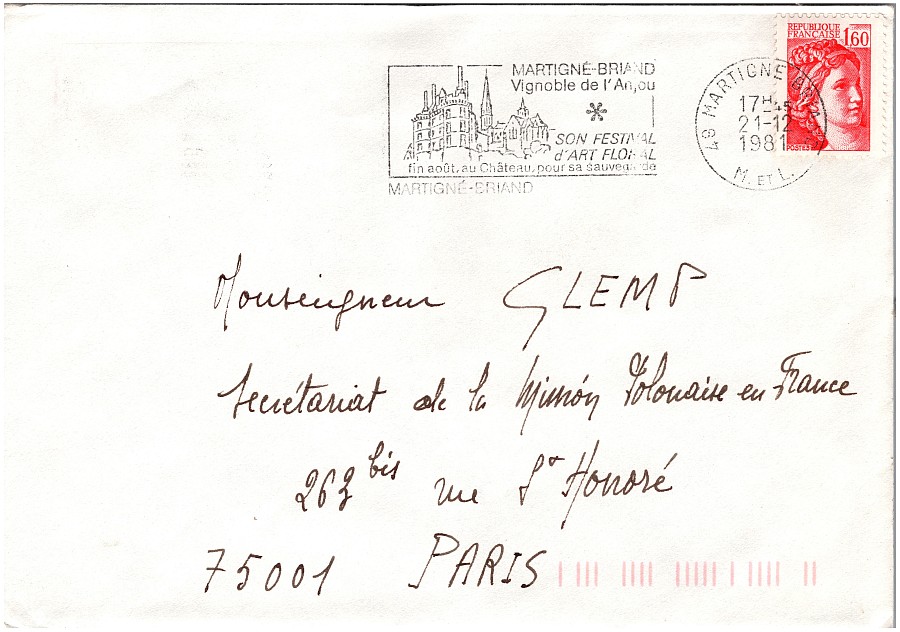 MARTIGNÉ-BRIAND
Vignoble de l'Anjou
SON FESTIVAL
d'ART FLORAL
fin août, au Château, pour sa sauvegarde
MARTIGNÉ-BRIAND
49 MARTIGNE BRIAND
17H45
21-12
1981
M. ET L.
REPUBLIQUE
FRANÇAISE
1,60
POSTES
Monseigneur GLEMP
Secrétariat de la Mission Polonaise en France
263 bis rue St Honoré
75001 PARIS